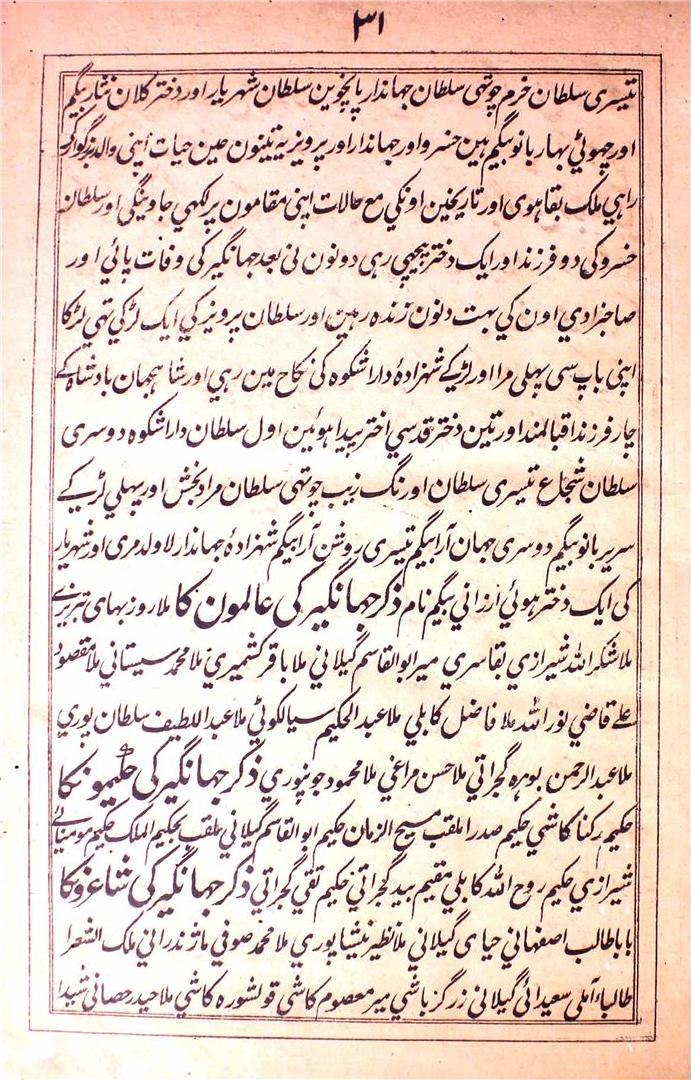 ۳۱
تیسری سلطان خرم چوتھی سلطان جہاندار پانچوین سلطان شہریار اور دختر کلان نثار بیگم
اور چھوٹی بہار بانو بیگم ہین خسرو اور جہاندار اور پرویز یہ تینون عین حیات اپنی والد بزرگوار کے
راہی ملک بقا ہوی اور تاریخین اونکی مع حالات اپنی مقامون پر لکھی جاوینگی اور سلطان
خسرو کی دو فرزند اور ایک دختر پیچھی رہی دونون نی بعد جہانگیر کی وفات پائی اور
صاحبزادی اون کی بہت دنون زندہ رہین اور سلطان پرویز کی ایک لڑکی تہی لڑکا
اپنی باپ سی پہلی مرا اور لڑکے شہزادۂ داراشکوہ کی نکاح مین رہی اور شاہجہان بادشاہ کے
چار فرزند اقبالمند اور تین دختر قدسی اختر پیدا ہوئین اول سلطان داراشکوہ دوسری
سلطان شجاع تیسری سلطان اورنگ زیب چوتھی سلطان مراد بخش اور پہلی لڑکے
سریر بانو بیگم دوسری جہان آرا بیگم تیسری روشن آرا بیگم شہزادۂ جہاندار لاولد مری اور شہریار
کی ایک دختر ہوئی ارزانی بیگم نام ذکر جہانگیر کی عالمون کا ملا روز بہای تبریزے
ملا شکر اللہ شیرازی بقاسری میر ابو القاسم گیلانی ملا باقر کشمیری ملا محمد سیستانی ملا مقصود
علے قاضی نور اللہ ملا فاضل کابلی ملا عبد الحکیم سیالکوٹی ملا عبد اللطیف سلطان پوری
ملا عبد الرحمن بوہرہ گجراتی ملا حسن مراغی ملا محمود جونپوری ذکر جہانگیر کی حکیمونکا
حکیم رکنا کاشی حکیم صدرا ملقب مسیح الزمان حکیم ابو القاسم گیلانی ملقب بحکیم الملک حکیم مومنائے
شیرازی حکیم روح اللہ کابلی مقیم بید گجراتی حکیم تقی گجراتی ذکر جہانگیر کی شاعرونکا
بابا طالب اصفہانی حیای گیلانی ملا نظیر نیشاپوری ملا محمد صوفی ماژندرانی ملک الشعرا
طالبا آملی سعیدائ گیلانی زرگر باشی میر معصوم کاشی قولشورہ کاشی ملا حیدر حصانی شیدا